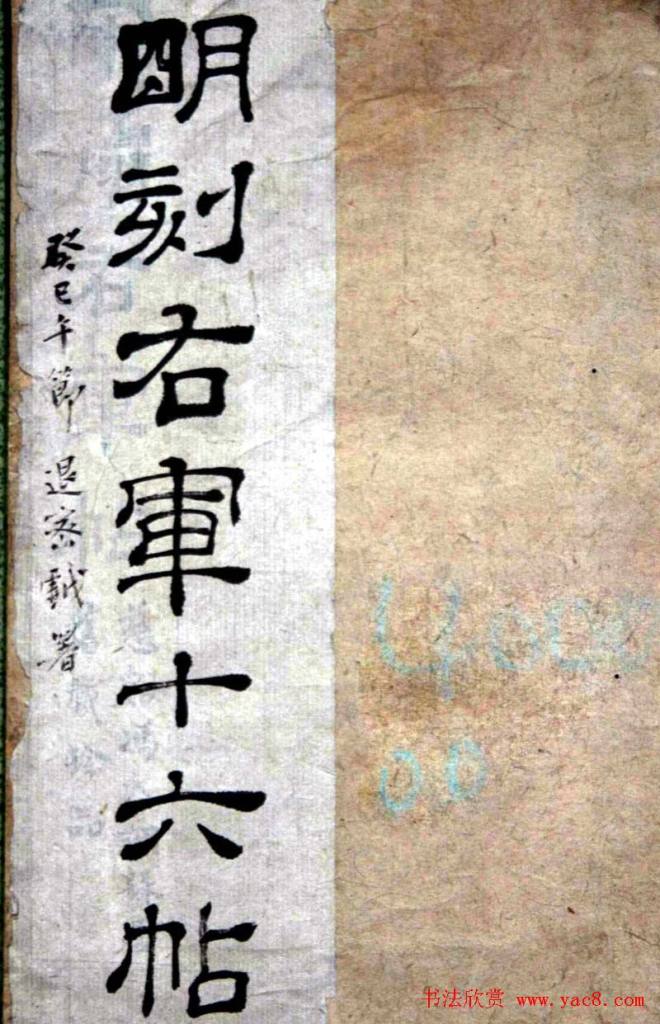 朙刻右軍十六帖
癸巳午節 退密 署
4000
00
书法欣赏 www.yac8.com